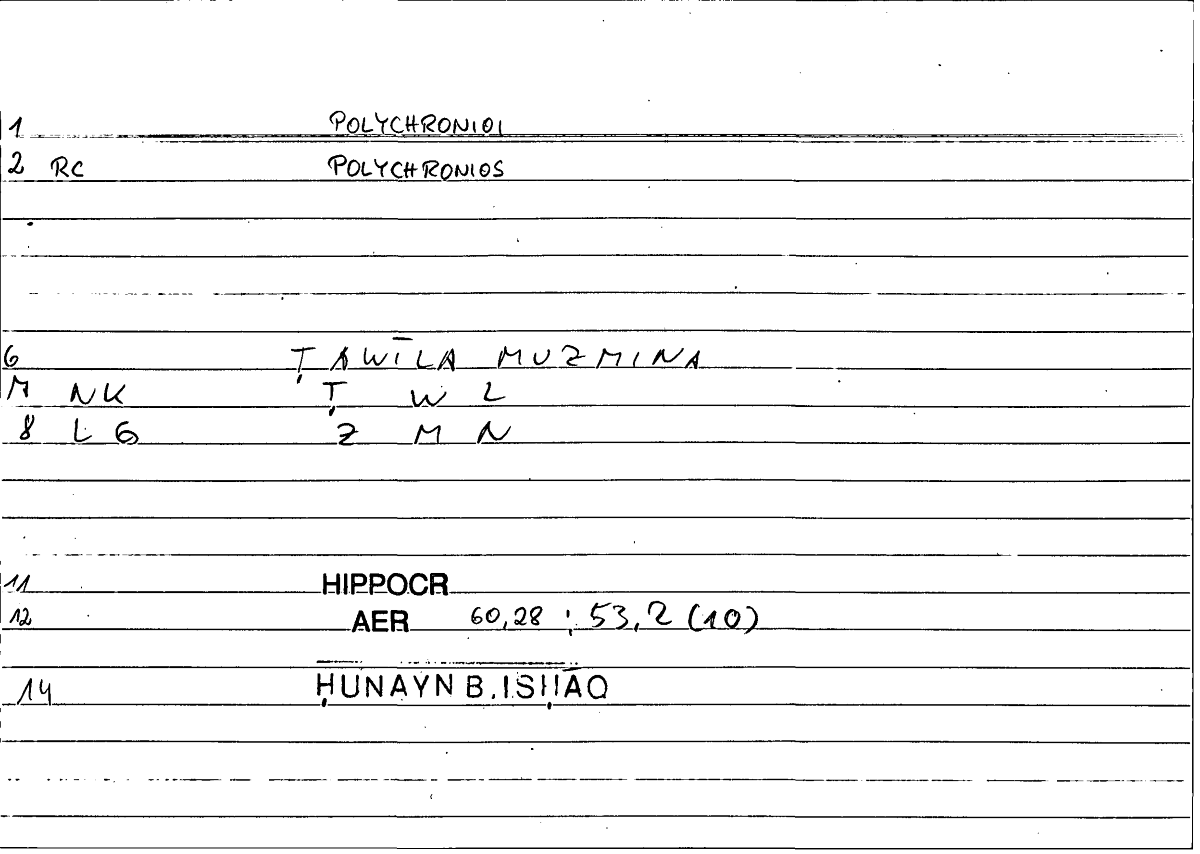 1 POLYCHRONIOI
2 RC POLYCHRONIOS
6 ṬAWĪLA MUZMINA
7 NK Ṭ W L
8 LG Z M N
11 HIPPOCR
12 AER 60,28 ; 53,2 (10)
14 ḤUNAYN B. ISḤĀQ